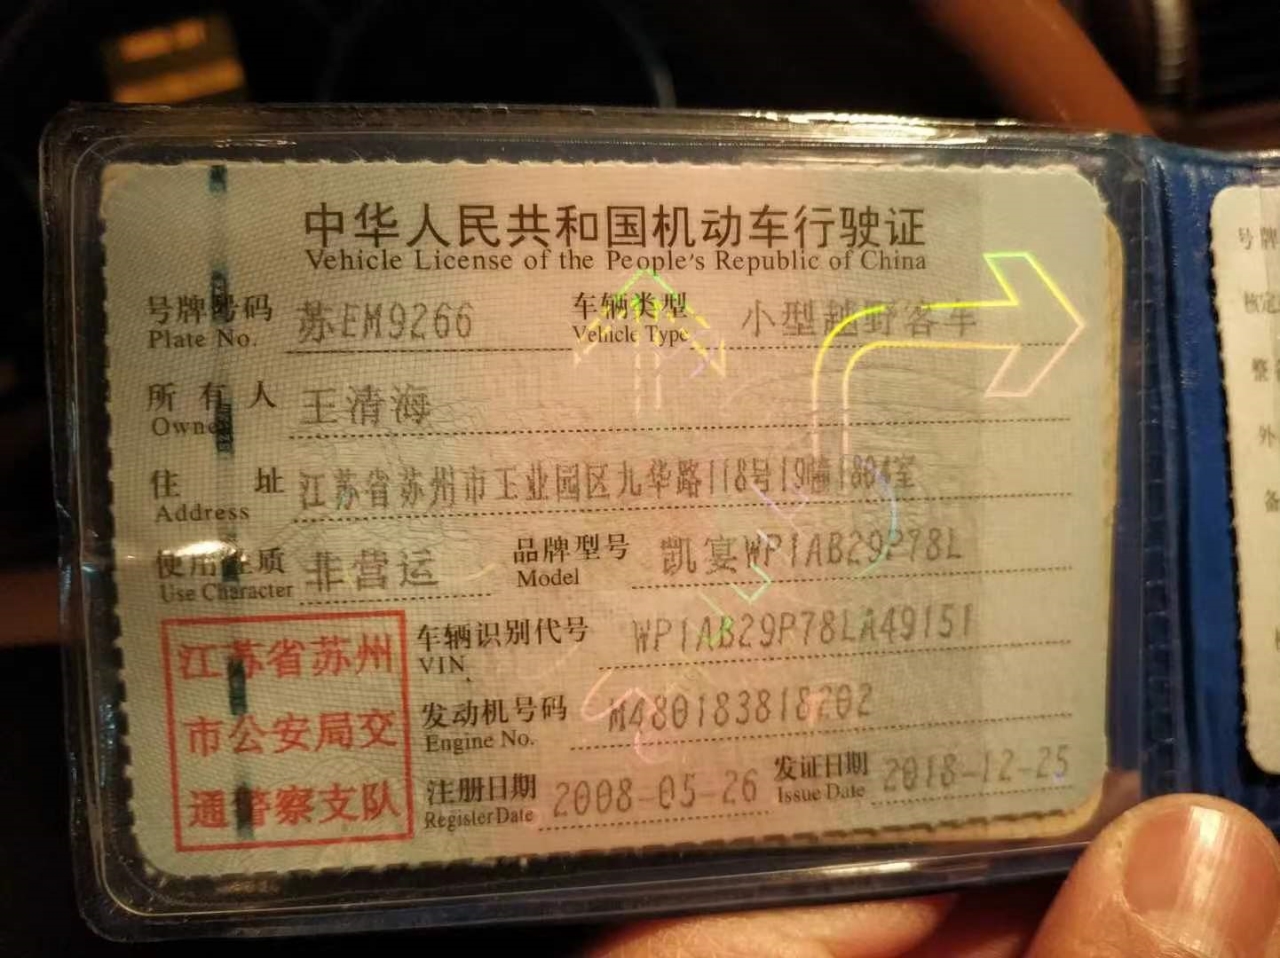 中华人民共和国机动车行驶证
Vehicle License of the People's Republic of China
号牌号码 苏EM9266 车辆类型 小型越野客车
Plate No. Vehicle Type
所有人 王清海
Owner
住址 江苏省苏州市工业园区九华路118号19幢1804室
Address
使用性质 非营运 品牌型号 凯宴WP1AB29P78L
Use Character Model
车辆识别代号 WP1AB29P78LA49151
VIN
发动机号码 M480183818202
Engine No.
注册日期 2008-05-26 发证日期 2018-12-25
Register Date Issue Date
江苏省苏州
市公安局交
通警察支队
号牌
核定
外
备